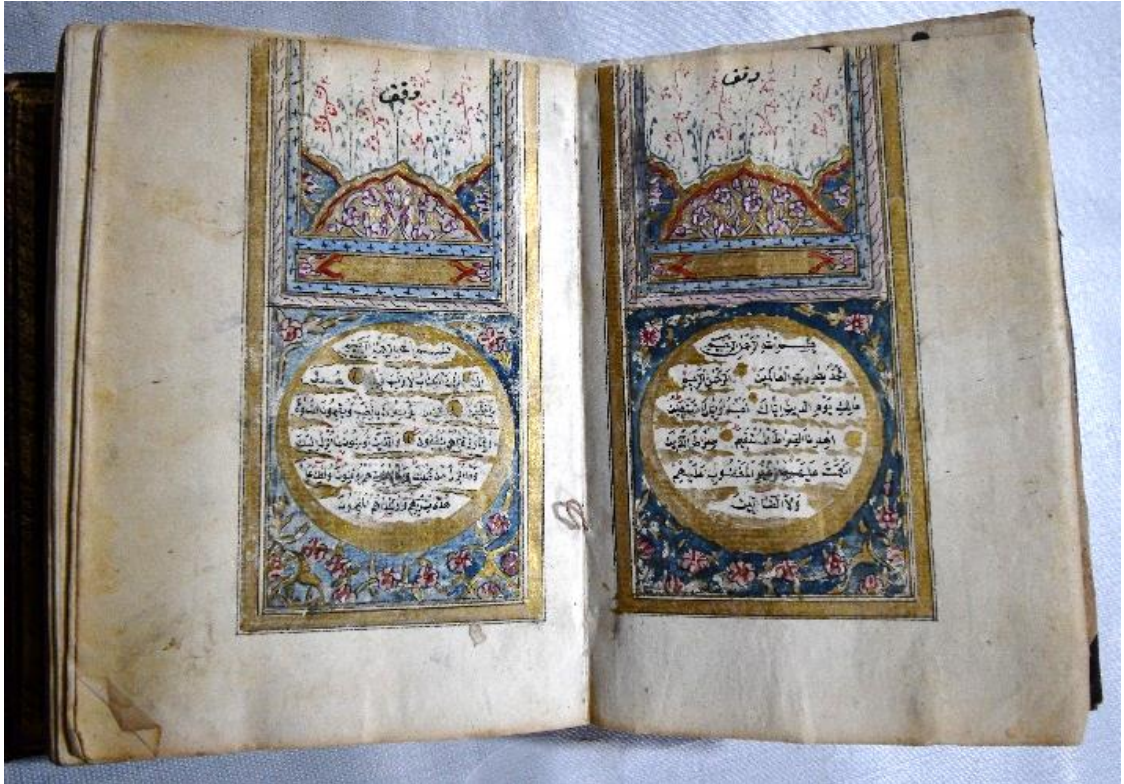 وقف
بسم الله الرحمن الرحيم
الحمد لله رب العالمين الرحمن الرحيم
مالك يوم الدين اياك نعبد واياك نستعين
اهدنا الصراط المستقيم صراط الذين
انعمت عليهم غير المغضوب عليهم
ولا الضالين
وقف
بسم الله الرحمن الرحيم
الم ذلك الكتاب لا ريب فيه هدى
للمتقين الذين يؤمنون بالغيب ويقيمون الصلوة
ومما رزقناهم ينفقون والذين يؤمنون بما انزل اليك
وما انزل من قبلك وبالاخرة هم يوقنون اولئك على
هدى من ربهم واولئك هم المفلحون